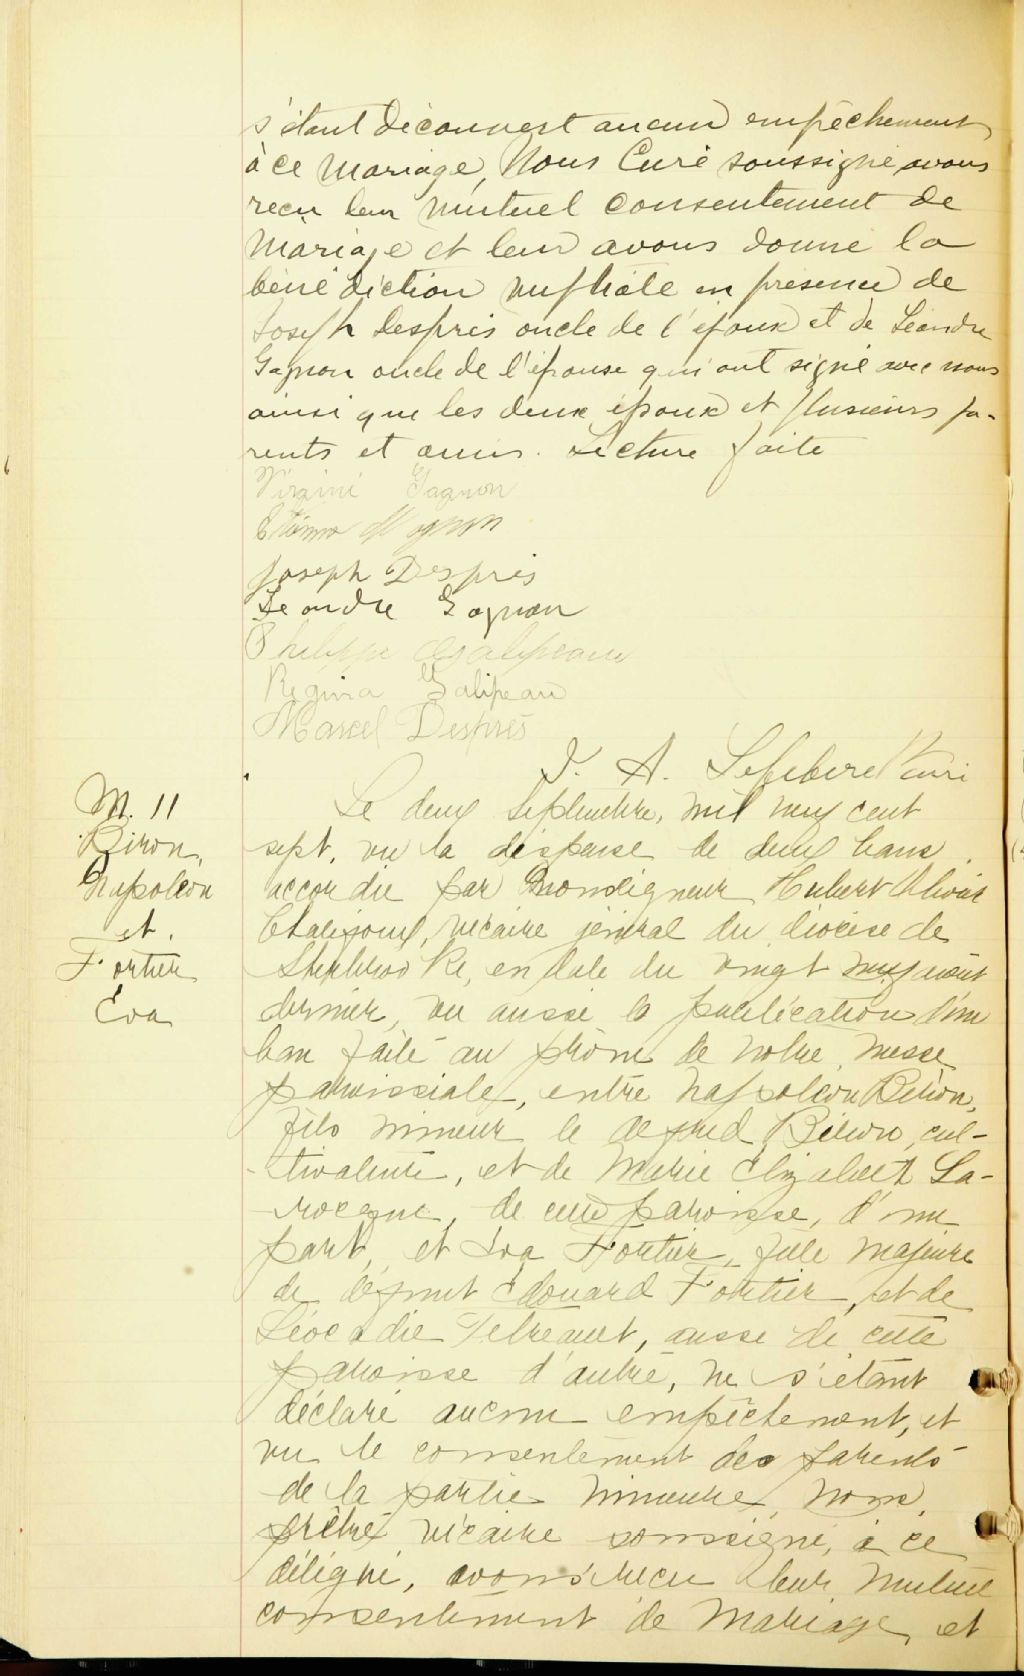 s'étant découvert aucun empêchement
à ce Mariage, Nous Curé soussigné avons
reçu leur mutuel consentement de
Mariage et leur avons donné la
bénédiction nuptiale en présence de
Joseph Després oncle de l'époux et de Léandre
Gagnon oncle de l'épouse qui ont signé avec nous
ainsi que les deux époux et plusieurs pa-
rents et amis. Lecture faite
Virgini Gagnon
Joseph Després
Léandre Gagnon
Philippe Galipeau
Régina Galipeau
Marcel Després
J. A. Lefebvre Ptre Curé
M. 11
Biron,
Napoléon
et.
Fortier
Éva
Le deux Septembre, mil neuf cent
sept, vu la dispense de deux bans
accordée par Monseigneur Hubert Olivier
Chalifoux, vicaire général du diocèse de
Sherbrooke, en date du vingt neuf août
dernier, vu aussi la publication d'un
ban faite au prône de notre messe
paroissiale, entre Napoléon Biron,
fils mineur de Alfred Biron, cul-
tivateur, et de Marie Elizabeth La-
rocque, de cette paroisse, d'une
part, et Éva Fortier, fille majeure
de défunt Edouard Fortier, et de
Léocadie Tetreault, aussi de cette
paroisse d'autre, ne s'étant
déclaré aucun empêchement, et
vu le consentement des parents
de la partie mineure, nous,
prêtre vicaire soussigné, à ce
délégué, avons reçu leur mutuel
consentement de Mariage, et